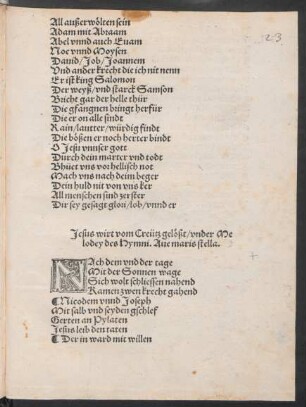 23
All außerwölten sein
Adam mit Abraam
Abel vnnd auch Euam
Noe vnnd Moysen
Dauid/ Job/ Joannem
Vnd ander krecht die ich nit nenn
Er ist king Salomon
Der weyß/ vnd starck Samson
Bricht gar der helle thür
Die gfangnen bringt herfür
Die er on alle sindt
Rain/ lautter/ würdig findt
Die bößen er noch herter bindt
O Jesu vnnser gott
Durch dein marter vnd todt
Bhüet vns vor hellisch not
Mach vns nach deim beger
Dein huld nit von vns ker
All menschen sind zerster
Dir sey gesagt glori/ lob/ vnnd er
Jesus wirt vom Creütz gelößt/ vnder Me
lodey des Hymni. Aue maris stella.
NAch dem vnd der tage
Mit der Sonnen wage
Sich wolt schliessen nahend
Kamen zwen krecht gahend
¶ Nicodem vnnd Joseph
Mit salb vnd seyden gschlef
Gerten an Pylaten
Jesus leib den taten
¶ Der in ward mit willen